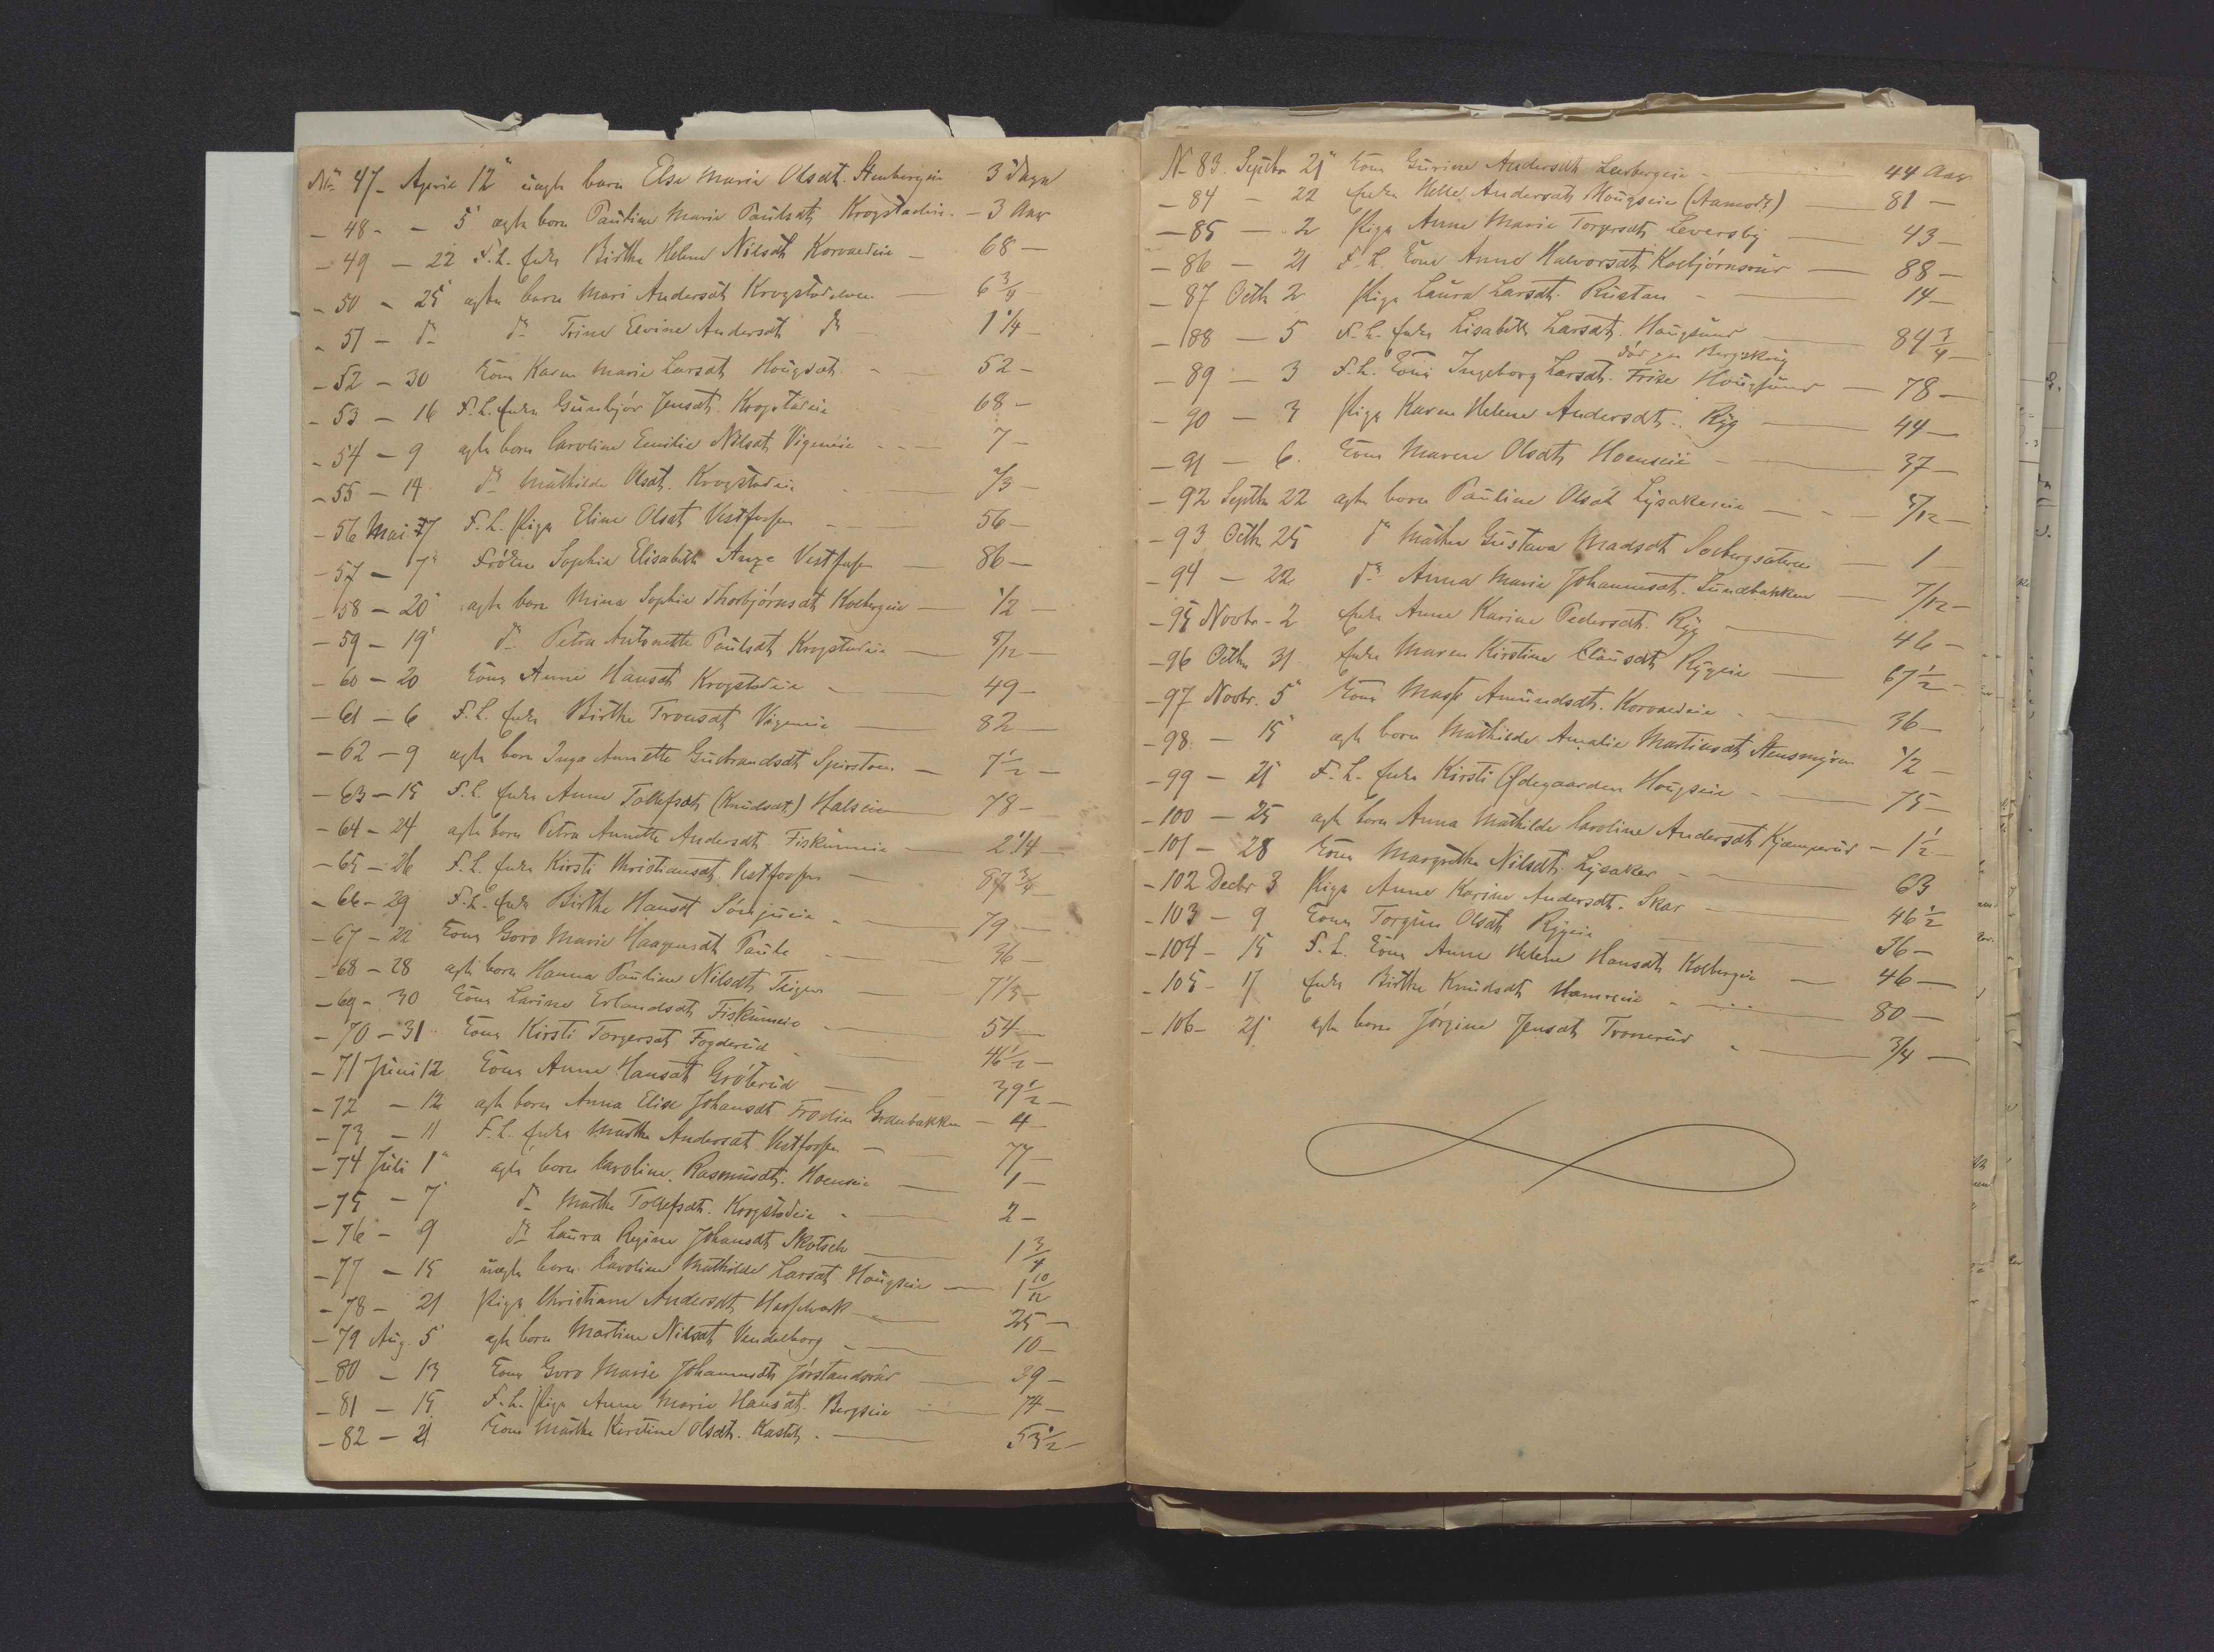 No 47 - April 12 uægte barn Else Maria Olsdt. Stenbergeie 3 Dage
- 48 - - 5 ægte barn Pauline Marie Paulsdt. Krogstadeie - 3 Aar
- 49 - 22 F. L. Enke Birthe Helene Nilsdt. Korvaldeie - 68 -
- 50 - 25 ægte barn Mari Andersdt. Krogstadelven - 6 3/4
- 51 - do do Trine Elvine Andersdt. do 1 1/4 -
- 52 - 30 Kone Karen Marie Larsdt. - 52 -
- 53 - 16 F. L. Enke Gunbjør Jensdt. Krogstadeie 68 -
- 54 - 9 ægte barn Caroline Emilie Nilsdt. Vigeneie - 7 -
- 55 - 14 do Mathilde Olsdt. Krogstadeie -
- 56 Mai 7 F. L. Pige Eline Olsdt. Vestfossen - 56 -
- 57 - 7 Frøken Sophia Elisabeth Vestfossen - 86 -
- 58 - 20 ægte barn Mina Sophie Thorbjørnsdt. Kolbergeie - 1/2 -
- 59 - 19 do Petra Antonette Paulsdt. Krogstadeie - 5/12 -
- 60 - 20 Kone Anne Hansdt. Krogstadeie - 49 -
- 61 - 6 F. L. Enke Birthe Tronsdt. Vigeneie - 82 -
- 62 - 9 ægte barn Inga Annette Gudbrandsdt. - 7 1/2 -
- 63 - 15 F. L. Enke Anne Tollefsdt. (Knudsdt.) Halseie - 78 -
- 64 - 24 ægte barn Petra Annette Andersdt. Fiskumeie - 2 1/4 -
- 65 - 26 F. L. Enke Kirsti Christiansdt. Vestfossen - 87 3/4
- 66 - 29 F. L. Enke Birthe Hansdt. - 79 -
- 67 - 22 Kone Goro Marie Haagensdt. - 36 -
- 68 - 28 ægte barn Hanna Pauline Nilsdt. Teigen -
- 69 - 30 Kone Larine Erlandsdt. Fiskumeie - 54 -
- 70 - 31 Kone Kirsti Torgersdt. Fogderud - 46 1/2 -
- 71 Juni 12 Kone Anne Hansdt. Grøterud - 39 1/2 -
- 72 - 12 ægte barn Anna Elise Johansdt. - 4 -
- 73 - 11 F. L. Enke Marthe Andersdt. Vestfossen - 77 -
- 74 Juli 1 ægte barn Caroline Rasmusdt. Hoenseie - 1 -
- 75 - 7 do Marthe Tollefsdt. Krogstadeie - 2 -
- 76 - 9 do Laura Regine Johansdt. - 1 3/4
- 77 - 15 uægte barn Caroline Mathilde Larsdt. Hougseie - 1 10/12
- 78 - 21 Pige Christiane Andersdt. - 25 -
- 79 Aug. 5 ægte barn Martine Nilsdt. Vendelborg - 10 -
- 80 - 13 Kone Goro Marie Johannesdt. - 39 -
- 81 - 15 F. L. Pige Anne Marie Hansdt. Bergseie - 74 -
- 82 - 21 Kone Marthe Kirstine Olsdt. - 53 1/2 -
No 83. Septbr 21 Kone Gurine Andersdt. - 44 Aar
- 84 - 22 Enke Helle Andersdt. Hougseie (Aamodt) - 81 -
- 85 - 2 Pige Anne Marie Torgersdt. Leversby - 43 -
- 86 - 21 F. L. Kone Anne Halvorsdt. Kolbjørnsrud - 88 -
- 87 Octbr 2 Pige Laura Larsdt. Rustan - 14 -
- 88 - 5 F. L. Enke Lisabeth Larsdt. Hougsund - 84 3/4 -
- 89 - 3 F. L. Kone Ingeborg Larsdt. Frise Hougsund - 78 -
- 90 - 3 Pige Karen Helene Andersdt. Ryg - 44 -
- 91 - 6. Kone Maren Olsdt. Hoenseie - 37 -
- 92 Septbr 22 ægte barn Pauline Olsdt. Lysakereie - 5/12 -
- 93 Octbr 25 do Mathea Gustava Madsdt. Solbergsæteren - 1 -
- 94 - 22 do Anna Marie Johannesdt. Sundbakken - 7/12 -
- 95 Novbr - 2 Enke Anne Karine Pedersdt. Ryg - 46 -
- 96 Octbr 31 Enke Maren Kirstine Clausdt. Rygeie - 67 1/2 -
- 97 Novbr. 5 Kone Marte Amundsdt. Korvaldeie - 36 -
- 98 - 15 ægte barn Mathilde Amalie Martinsdt. Stensmyren 1/2 -
- 99 - 21 F. L. Enke Kirsti (Ødegaarden Hougseie - 75 -
- 100 - 25 ægte barn Anna Mathilde Caroline Andersdt. Kjamperud - 1 1/2 -
- 101 - 28 Kone Margrethe Nilsdt. Lysaker - 63
- 102 Decbr 3 Pige Anne Karine Andersdt. Skar - 46 1/2
- 103 - 9 Kone Torgine Olsdt. Rygeie - 36 -
- 104 - 15 F. L. Kone Anne Helene Hansdt. Kolbergeie - 46 -
- 105 - 17 Enke Birthe Knudsdt. Hamreeie - 80 -
- 106 - 21 ægte barn Jørgine Jensdt. Tronerud - 3/4 -